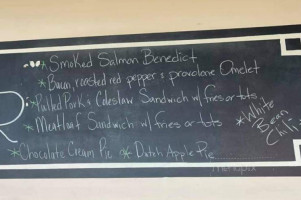 * Smoked Salmon Benedict
* Bacon, roasted red pepper & provolone Omelet
* Pulled Pork & Coleslaw Sandwich w/ fries or tots
* Meatloaf Sandwich w/ fries or tots
* White Bean Chili
* Chocolate Cream Pie * Dutch Apple Pie
R